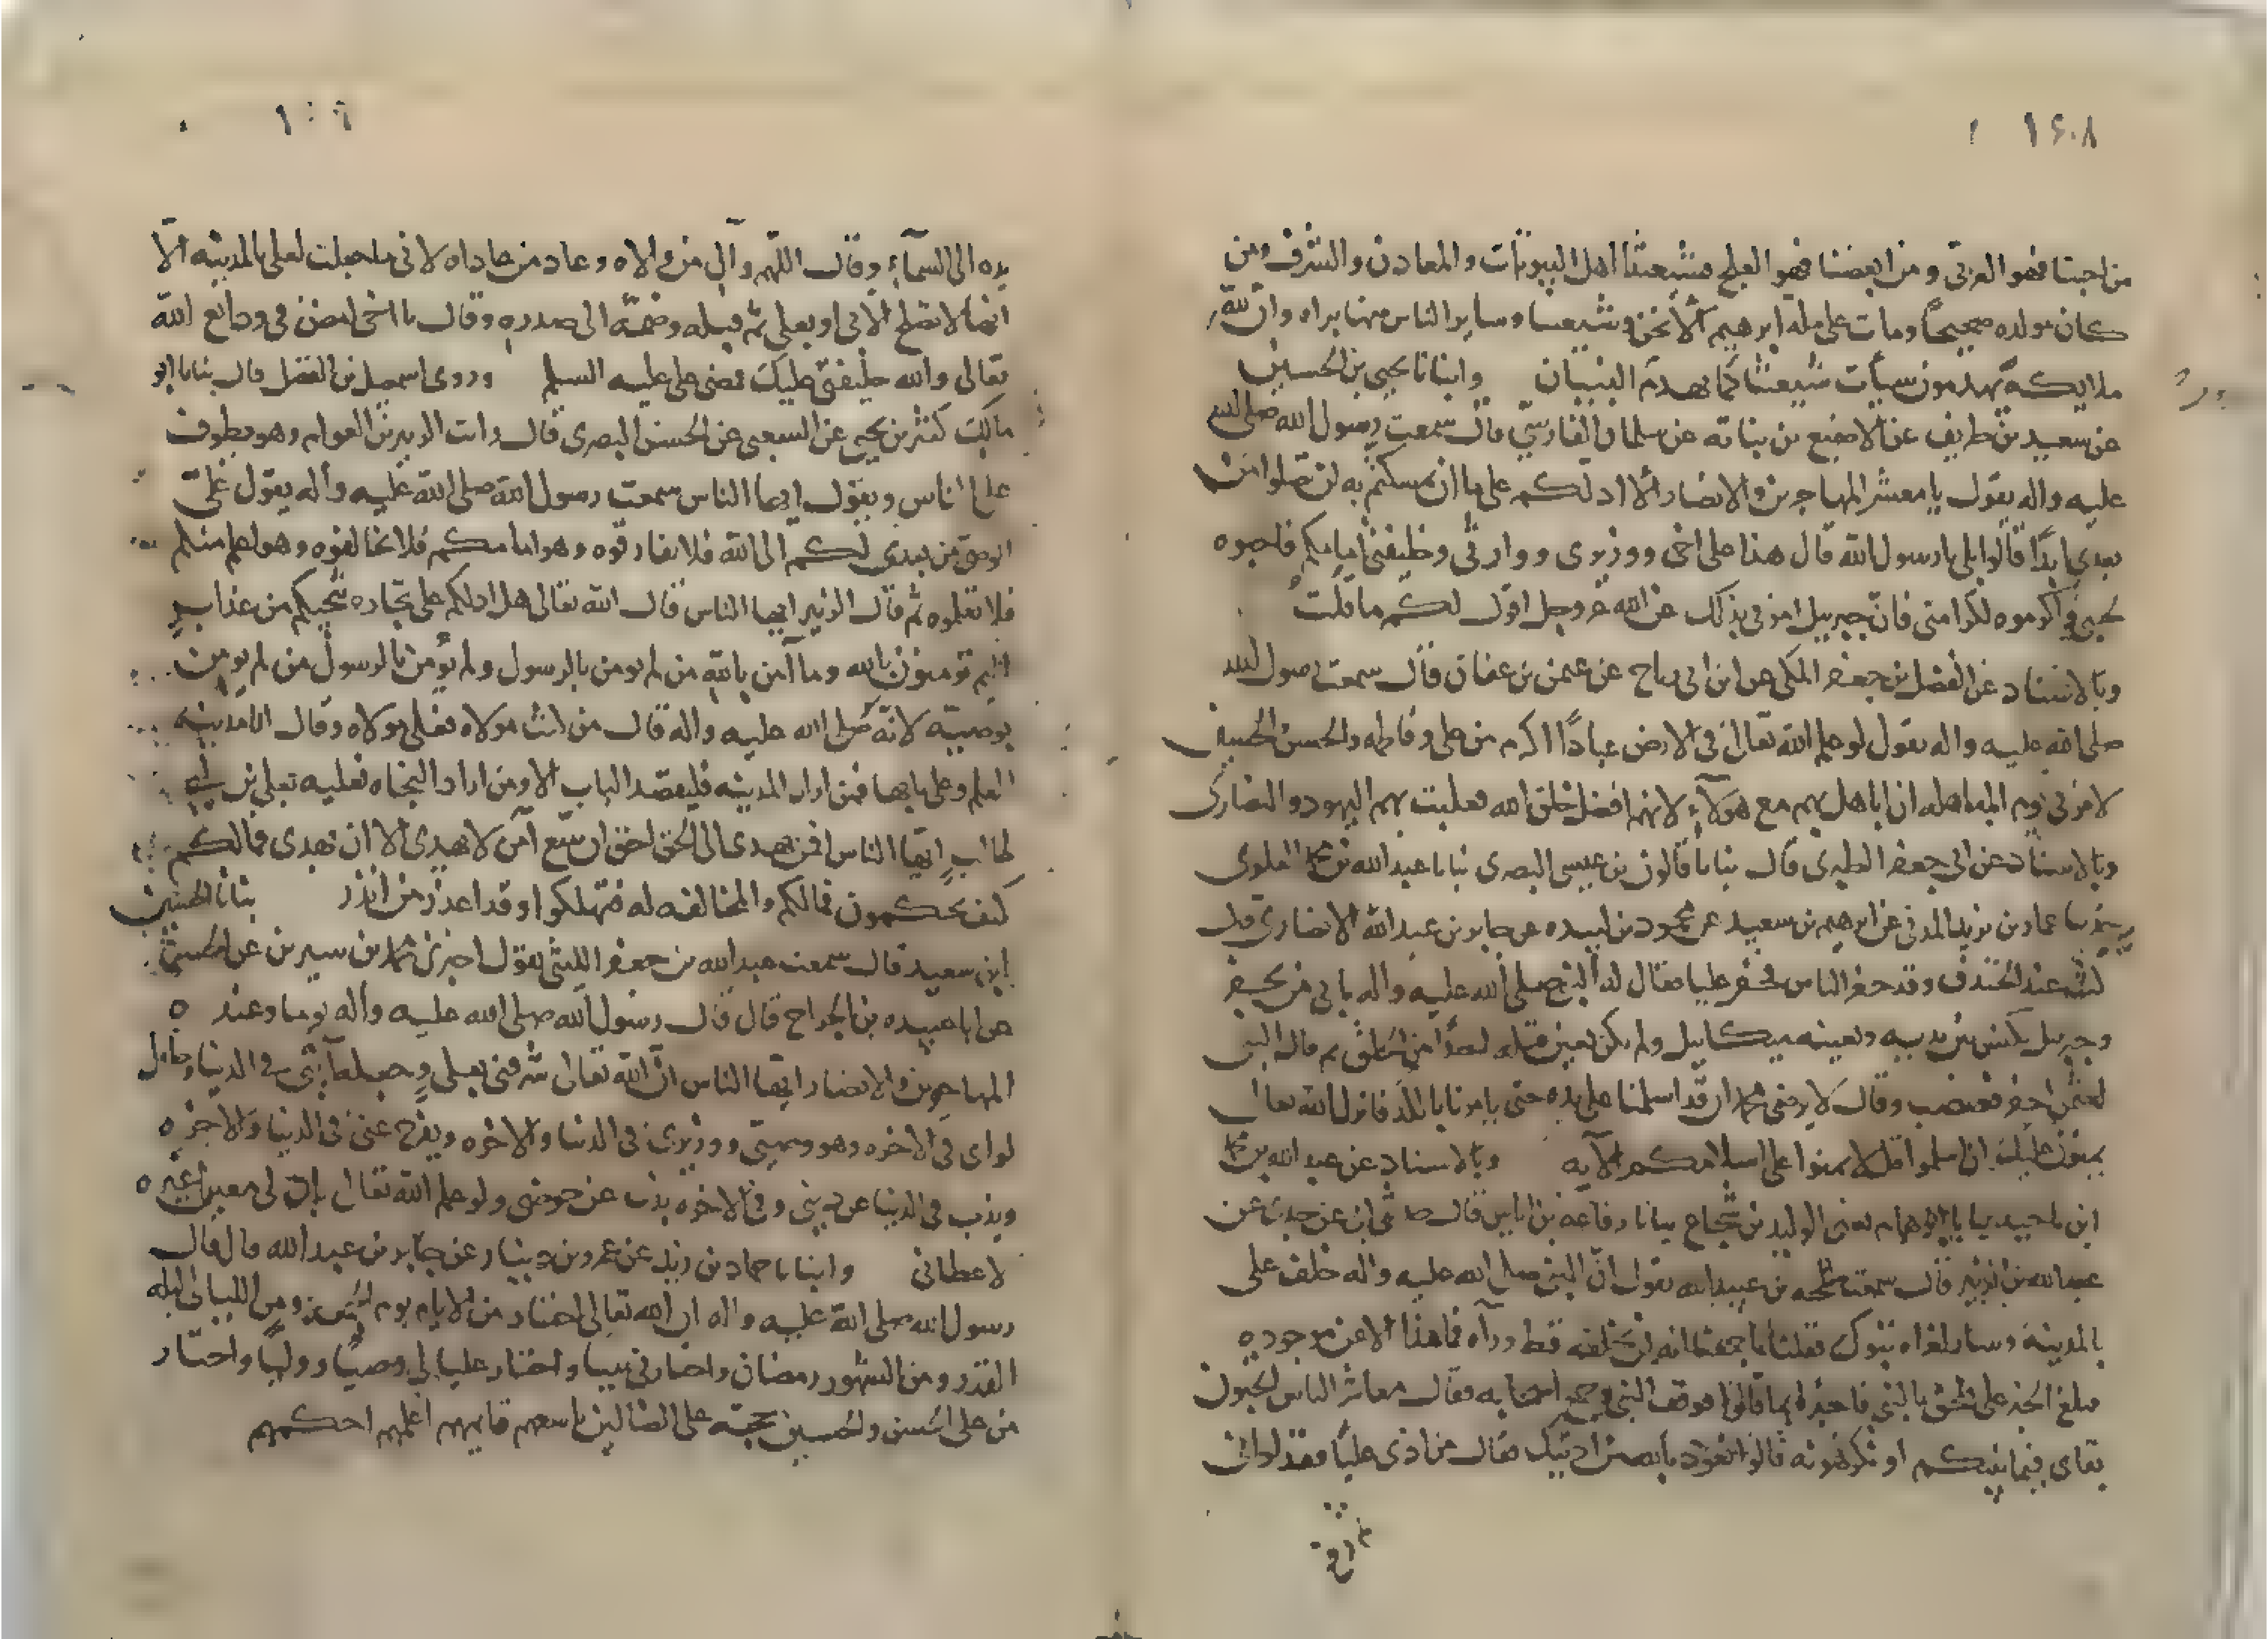 ١٠٨
من احبنا فهو العربى و من ابغضنا فهو العلج فشيعتنا اهل البيوتات و المعادن و الشرف و من
كان مولده صحيحاً و مات على ملة ابرهيم الا نحن و شيعتنا و ساير الناس منها براه و ان لله
ملايكة يهدمون سيأت شيعتنا كما يهدم البنيان وانبانا يحيى بن الحسين
عن سعيد بن طريف عن الاصبغ بن نباته عن سلمان الفارسي قال سمعت رسول الله صلى الله
عليه واله يقول يا معشر المهاجرين والانصار ألا ادلكم على ما ان تمسكتم به لن تضلوا من
بعدي ابداً قالوا بلى يا رسول الله قال هذا على اخى ووزيرى ووارثى وخليفتى امامكم فاحبوه
لحبى واكرموه لكرامتى فان جبرييل امرنى بذلك عن الله عز وجل اقول لكم ما قلت
وبالاسناد عن الفضل بن جعفر المكى عن ابن ابى رباح عن عثمن بن عفان قال سمعت رسول الله
صلى الله عليه واله يقول لو علم الله تعالى فى الارض عباداً اكرم من على وفاطمه والحسن والحسين
لامرنى يوم المباهله ان اباهل بهم مع هولآء لانهم افضل خلق الله فغلبت بهم اليهود والنصارى
وبالاسناد عن ابى جعفر الطبرى قال نبانا قالون بن عيسى البصرى نبانا عبد الله بن محمد العلوى
عماد بن يزيد المدنى عن ابرهيم بن سعيد عن محمود بن لبيده عن جابر بن عبد الله الانصارى قال
كنت عند الخندق وقد حفر الناس وحفر عليا فقال له النبى صلى الله عليه واله بابى من يحفر
وجبرييل يكنس بين يديه وتعينه ميكاييل ولم يكن يعين قبله احداً من الخلق ثم قال النبى
لعثمن احفر فغضب وقال لا يرضى محمد ان قد اسلمنا على يده حتى يامرنا بالكد فانزل الله تعالى
يمنون عليك ان اسلموا قل لا تمنوا على اسلامكم الآيه وبالاسناد عن عبد الله بن محمد
ابن عبد الوليد بن شجاع نبانا رفاعه بن اياس قال حدثنى ابى عن جدى عن
عبد الله بن الزبير قال سمعت طلحه بن عبيد الله يقول ان النبى صلى الله عليه واله خلف على
بالمدينة وسار لغزاه تبوك فقلنا باجمعنا انه لن يخلفه قط وراه فاهذا الا عن موجوده
فبلغ الخبر على فلحق بالنبى فاخبره بما قالوا فوقف النبى وجمع اصحابه فقال معاشر الناس اتحبون
بقاى فيما بينكم او تكرهونه قالوا نعوذ بالله من اذيتك فقال من اذى علياً فقد اذانى
١٠٩
يده الى السمآء وقال اللهم وآل من والاه وعاد من عاداه لانى ما جعلت لعلى بالمدينه الا
انها لا تصلح الا فى او بعلى ثم قبله وضمه الى صدره وقال يا اخى امض فى ودايع الله
تعالى والله خليفتى عليك فمضى على عليه السلم وروى اسمعيل بن الفضل قال نبانا ابو
مالك كثير بن يحيى عن الشعبى عن الحسن البصرى قال رايت الزبير بن العوام وهو يطوف
على الناس ويقول ايها الناس سمعت رسول الله صلى الله عليه واله يقول على
الوصى من بعدى لكم الى الله فلا تفارقوه وهو امامكم فلا تخالفوه وهو اعلم منكم
فلا تعلموه ثم قال الزبير ايها الناس قال الله تعالى هل ادلكم على تجاره تنجيكم من عذاب
اليم تؤمنون بالله وما آمن بالله من لم يومن بالرسول ولم يؤمن بالرسول من لم يومن
بوصيته لانه صلى الله عليه واله قال من كنت مولاه فعلى مولاه وقال انا مدينه
العلم وعلى بابها فمن اراد المدينه فليقصد الباب الا ومن اراد النجاه فعليه بعلى بن ابى
طالب ايها الناس افمن يهدى الى الحق احق ان يتبع آمن لا يهدى الا ان يهدى فمالكم
كيف تحكمون فمالكم والمخالفه له فتهلكوا وقد اعذر من انذر نبانا الحسين
ابن سعيد قال سمعت عبد الله بن جعفر الليثى يقول اخبرنى محمد بن سيرين عن الحسن
عن ابا عبيده بن الجراح قال قال رسول الله صلى الله عليه واله يوما وعنده
المهاجرين والانصار ايها الناس ان الله تعالى شرفنى بعلى وجعله فى الدنيا وحامل
لواى فى الاخره وهو وصيى ووزيرى فى الدنيا والاخره ويفرح عنى فى الدنيا والاخره
ويذب فى الدنيا عن دينى وفى الاخره يذب عن حوضى ولو علم الله تعالى بان لى معين غيره
لاعطانى وانبانا حماد بن زيد عن عمرو بن دينار عن جابر بن عبد الله قال قال
رسول الله صلى الله عليه واله ان الله تعالى اختار من الايام يوم ومن الليالى ليله
القدر ومن الشهور رمضان واختارنى نبيا واختار عليا لى وصيا وولياً واختار
من على الحسن والحسين حجته على الضالين تاسعهم قايمهم اعلمهم احكمهم